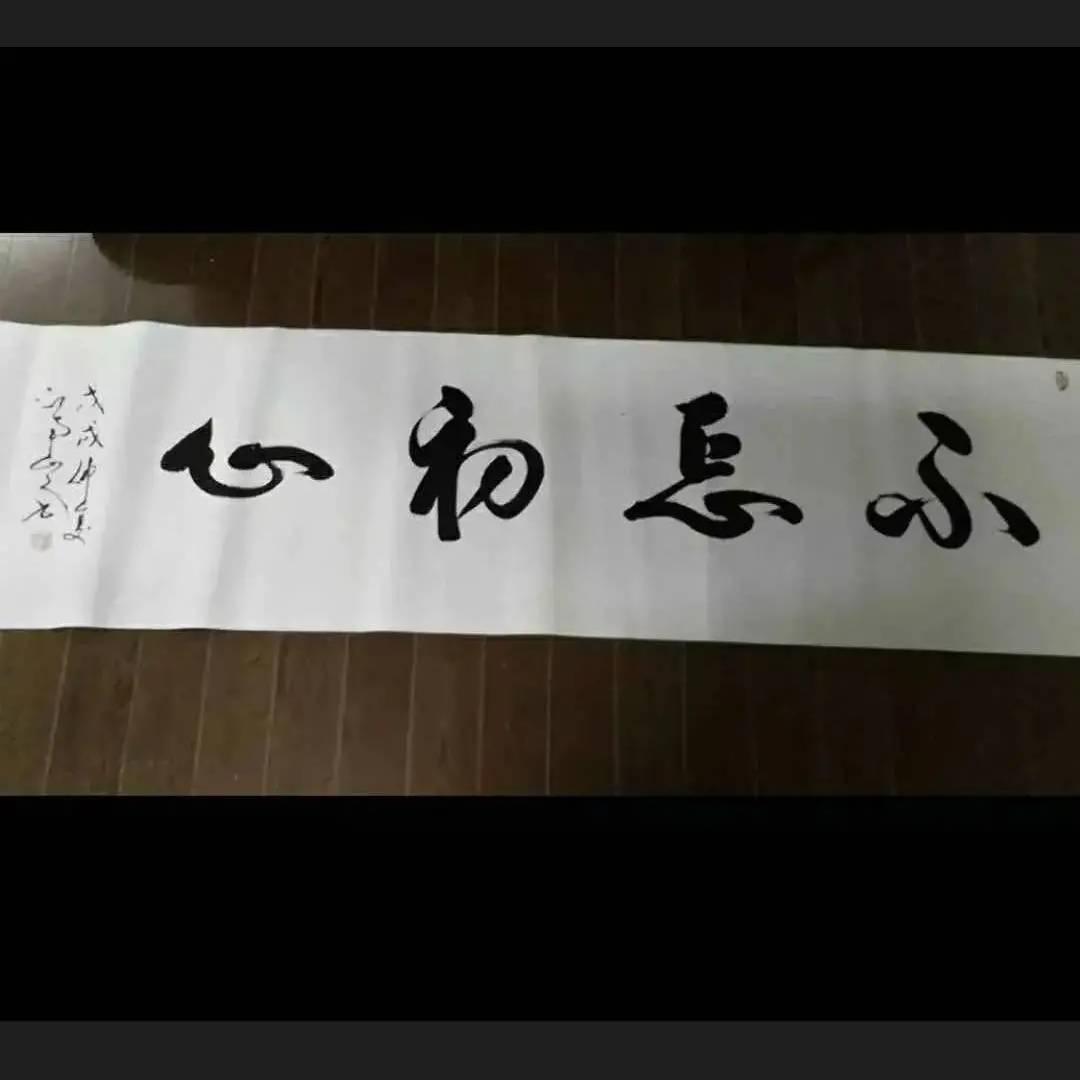 不忘初心
戊戌仲夏